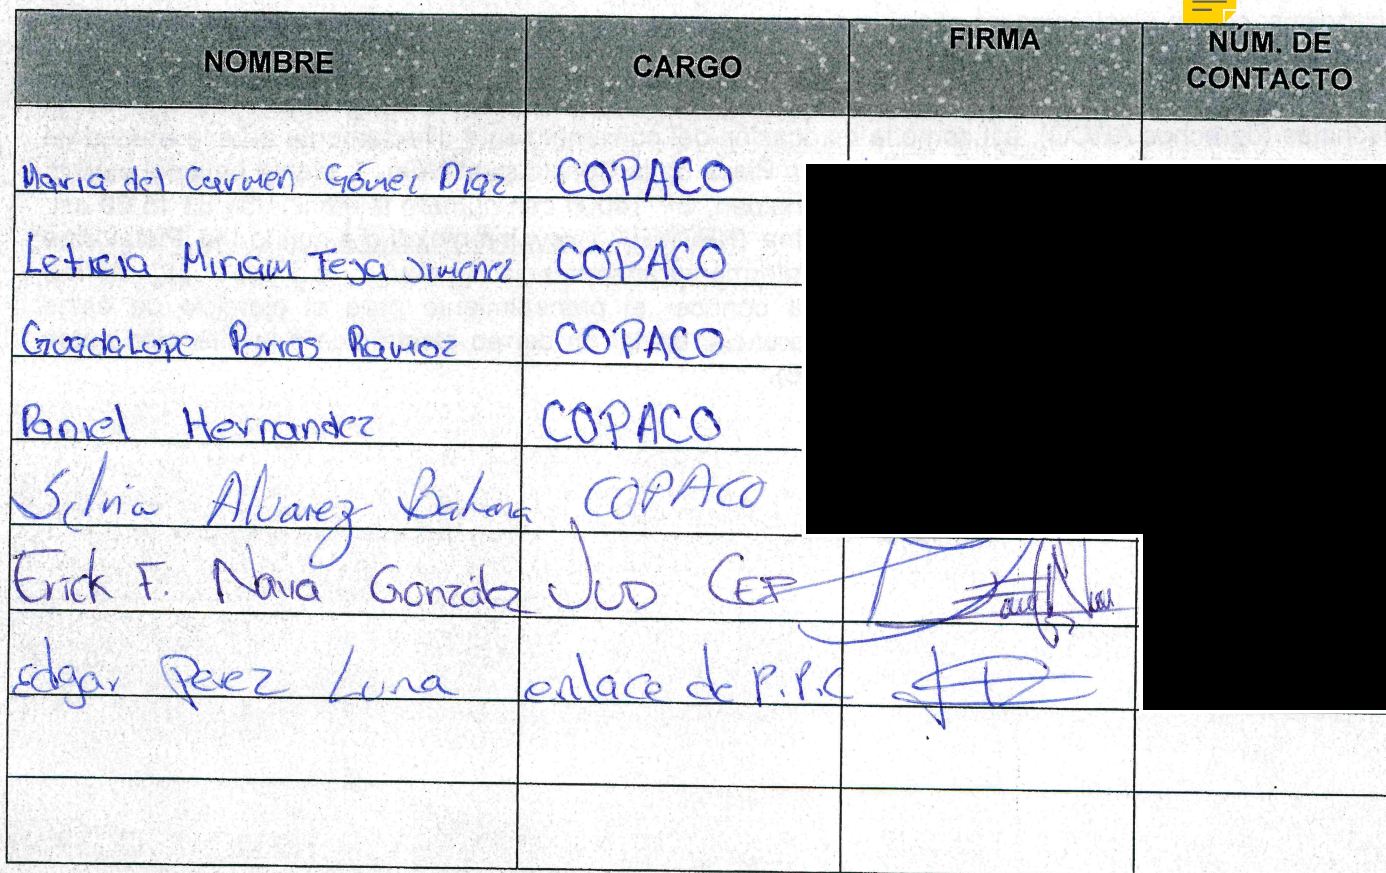 NOMBRE CARGO FIRMA NÚM. DE CONTACTO
María del Carmen Gómez Díaz COPACO
Leticia Miriam Teja Jimenez COPACO
Guadalupe Porras Ramoz COPACO
Daniel Hernandez COPACO
Silvia Alvarez Bahena COPACO
Erick F. Nava González JUD CEP
Edgar Perez Luna enlace de P.P.C